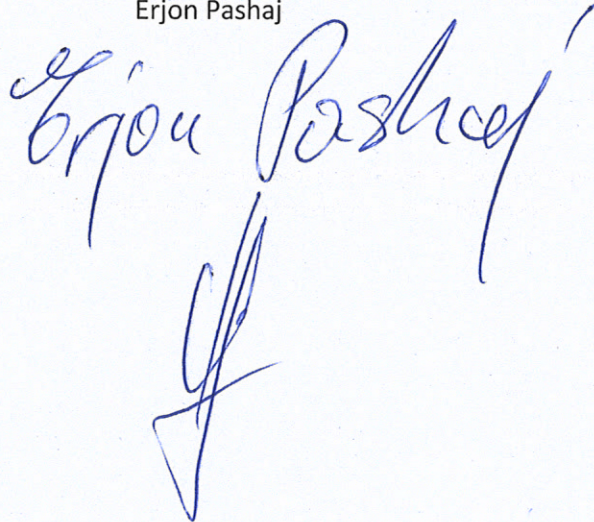 Erjon Pashaj
Erjon Pashaj